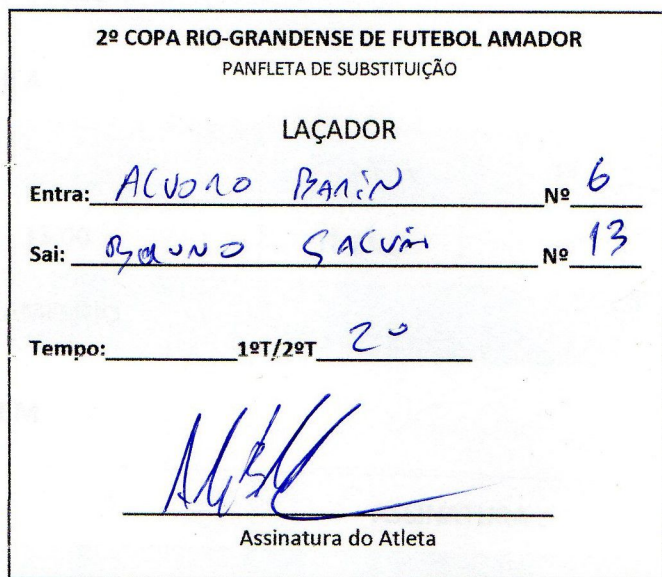 2º COPA RIO-GRANDENSE DE FUTEBOL AMADOR
PANFLETA DE SUBSTITUIÇÃO
LAÇADOR
Entra: ALVORO BARIN Nº 6
Sai: BRUNO Nº 13
Tempo: 1ºT/2ºT 2º
Assinatura do Atleta